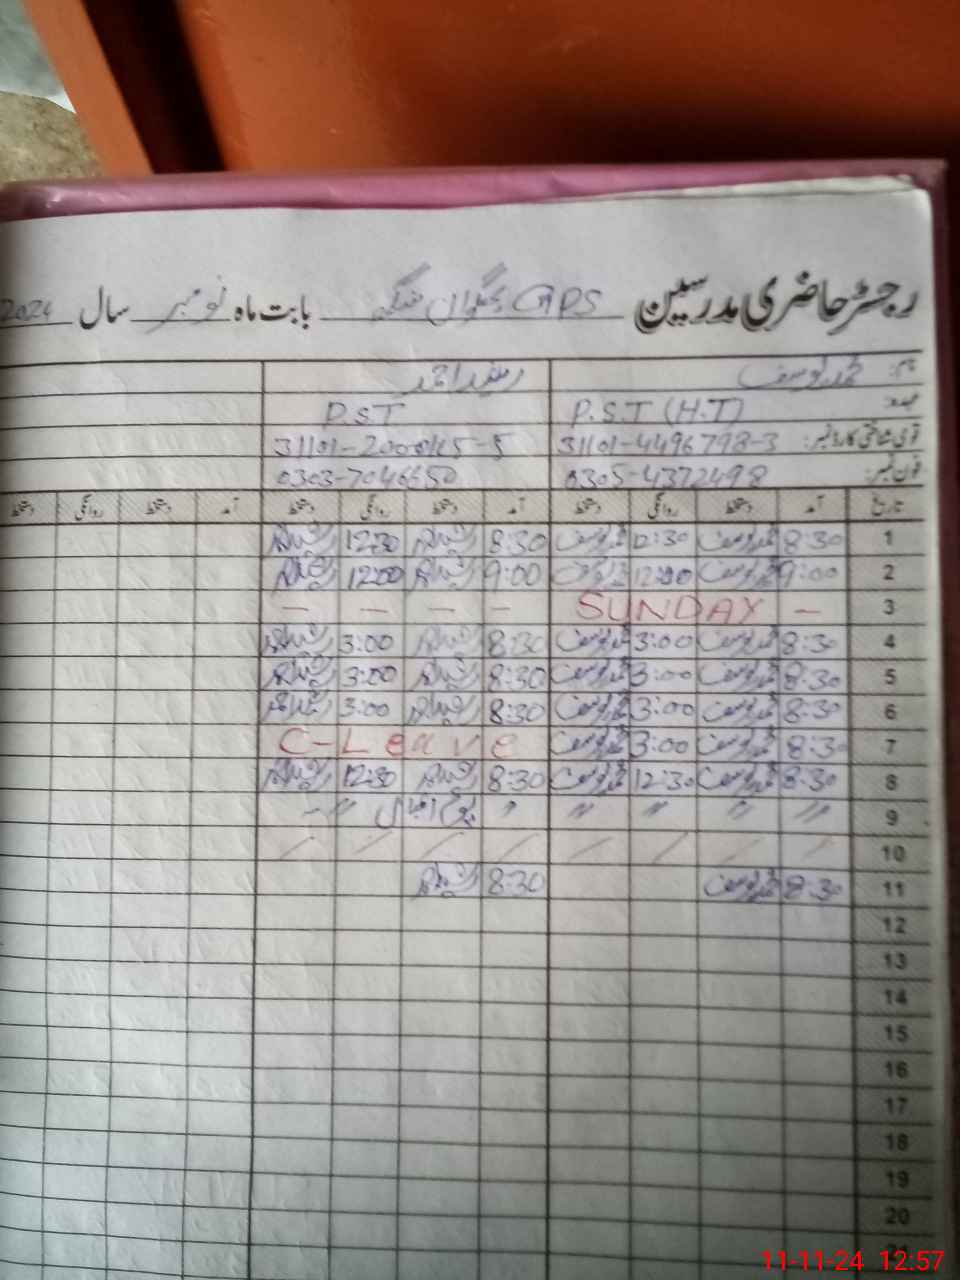 رجسٹر حاضری مدرسین GPS بابت ماہ نومبر سال 2024
نام: محمد یوسف رشید احمد
عہدہ: P.S.T (H.T) P.S.T
قومی شناختی کارڈ نمبر: 31101-4496798-3
فون نمبر: 0305-4372498 0303-7046650
تاریخ آمد دستخط روانگی دستخط آمد دستخط روانگی دستخط آمد دستخط روانگی دستخط
1 8:30 محمد یوسف 12:30 محمد یوسف 8:30 رشید احمد 12:30 رشید احمد
2 9:00 محمد یوسف 12:00 محمد یوسف 9:00 رشید احمد 12:00 رشید احمد
3 - SUNDAY - - - -
4 8:30 محمد یوسف 3:00 محمد یوسف 8:30 رشید احمد 3:00 رشید احمد
5 8:30 محمد یوسف 3:00 محمد یوسف 8:30 رشید احمد 3:00 رشید احمد
6 8:30 محمد یوسف 3:00 محمد یوسف 8:30 رشید احمد 3:00 رشید احمد
7 8:30 محمد یوسف 3:00 محمد یوسف C-Leave
8 8:30 محمد یوسف 12:30 محمد یوسف 8:30 رشید احمد 12:30 رشید احمد
9 〃 〃 〃 〃 〃 یوم اقبال 〃 -
10 / / / / / / / /
11 8:30 محمد یوسف 8:30 رشید احمد
12
13
14
15
16
17
18
19
20
21
11-11-24 12:57